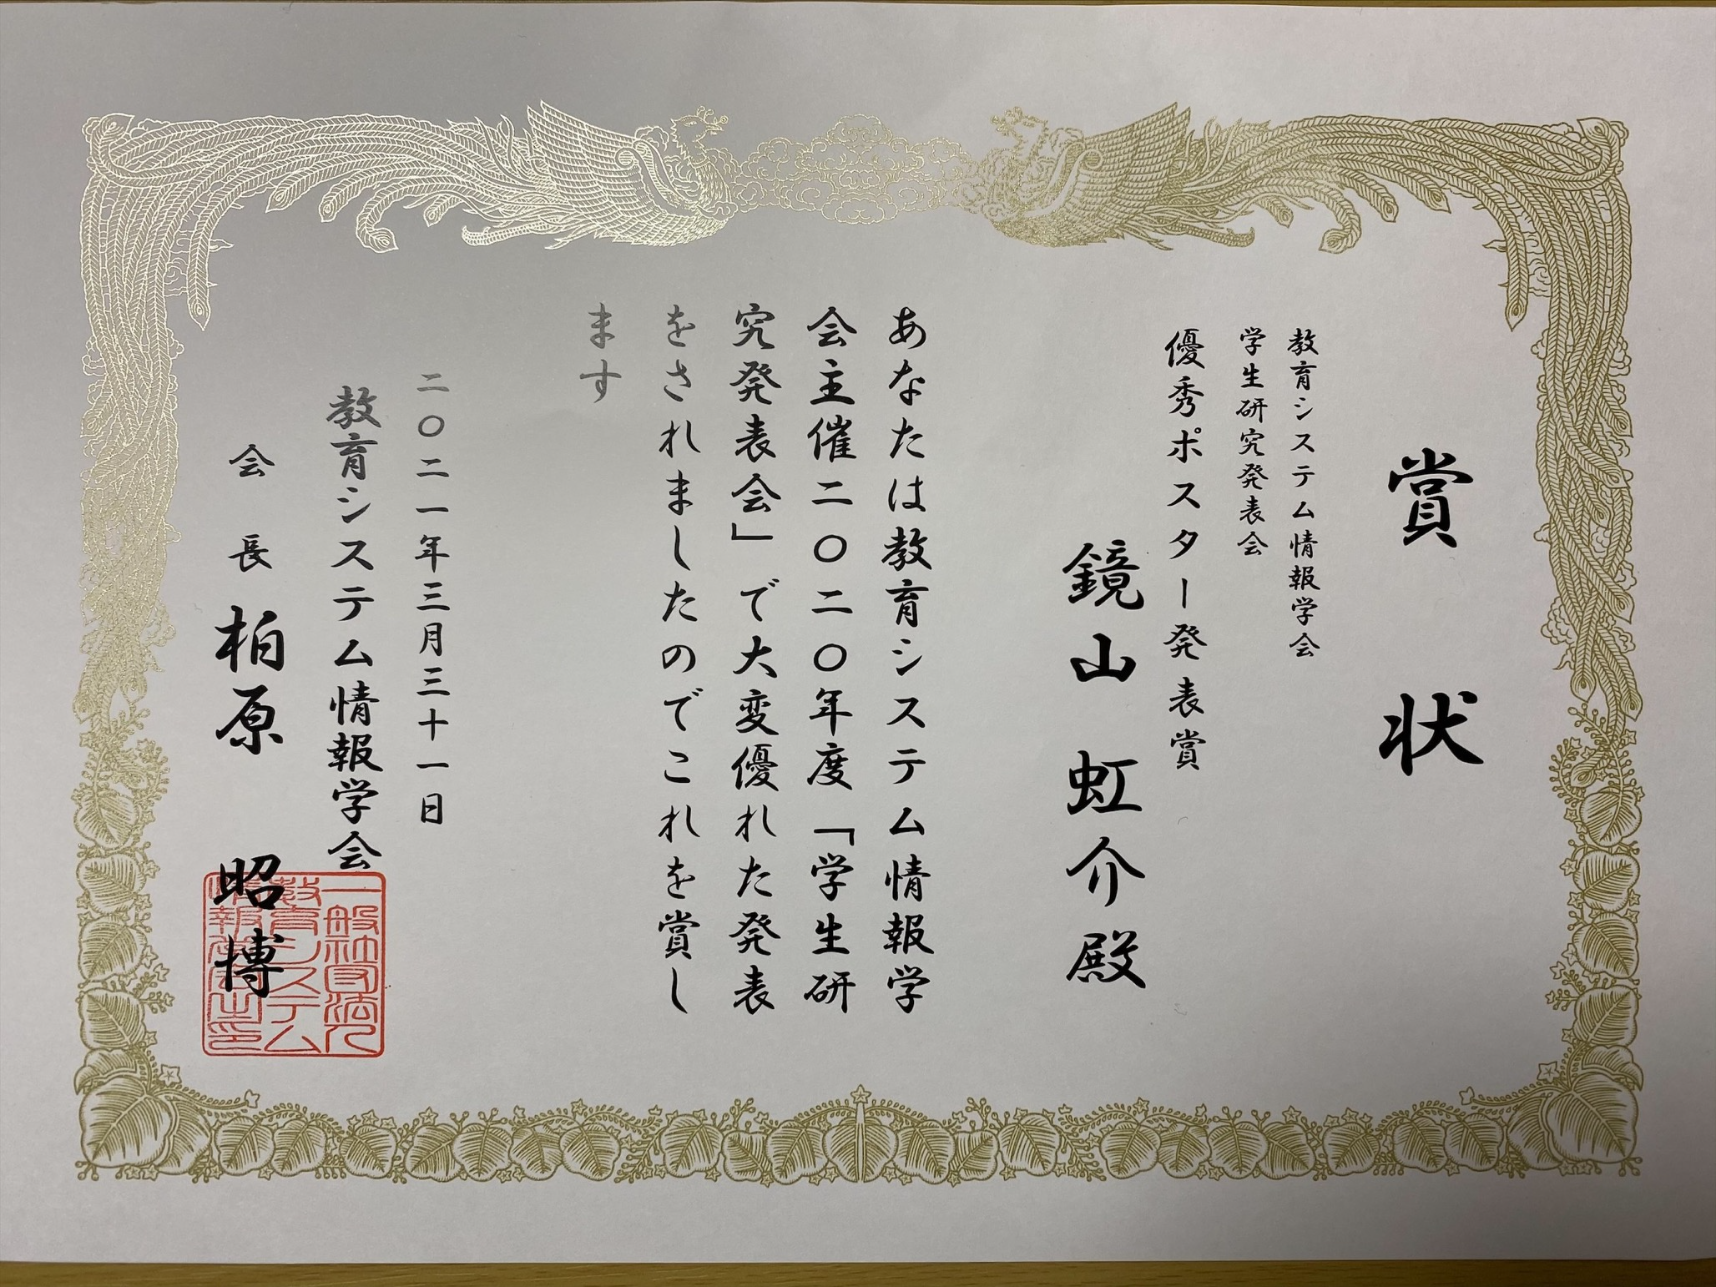 賞状
教育システム情報学会
学生研究発表会
優秀ポスター発表賞
鏡山 虹介 殿
あなたは教育システム情報学
会主催二〇二〇年度「学生研
究発表会」で大変優れた発表
をされましたのでこれを賞し
ます
二〇二一年三月三十一日
教育システム情報学会
会長 柏原 昭博
一般社団法人
教育システム
情報学会之印